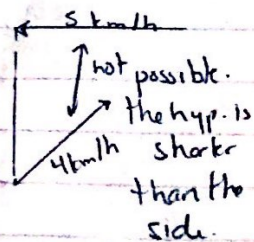 5 km/h
not possible.
the hyp. is
4km/h shorter
than the
side.